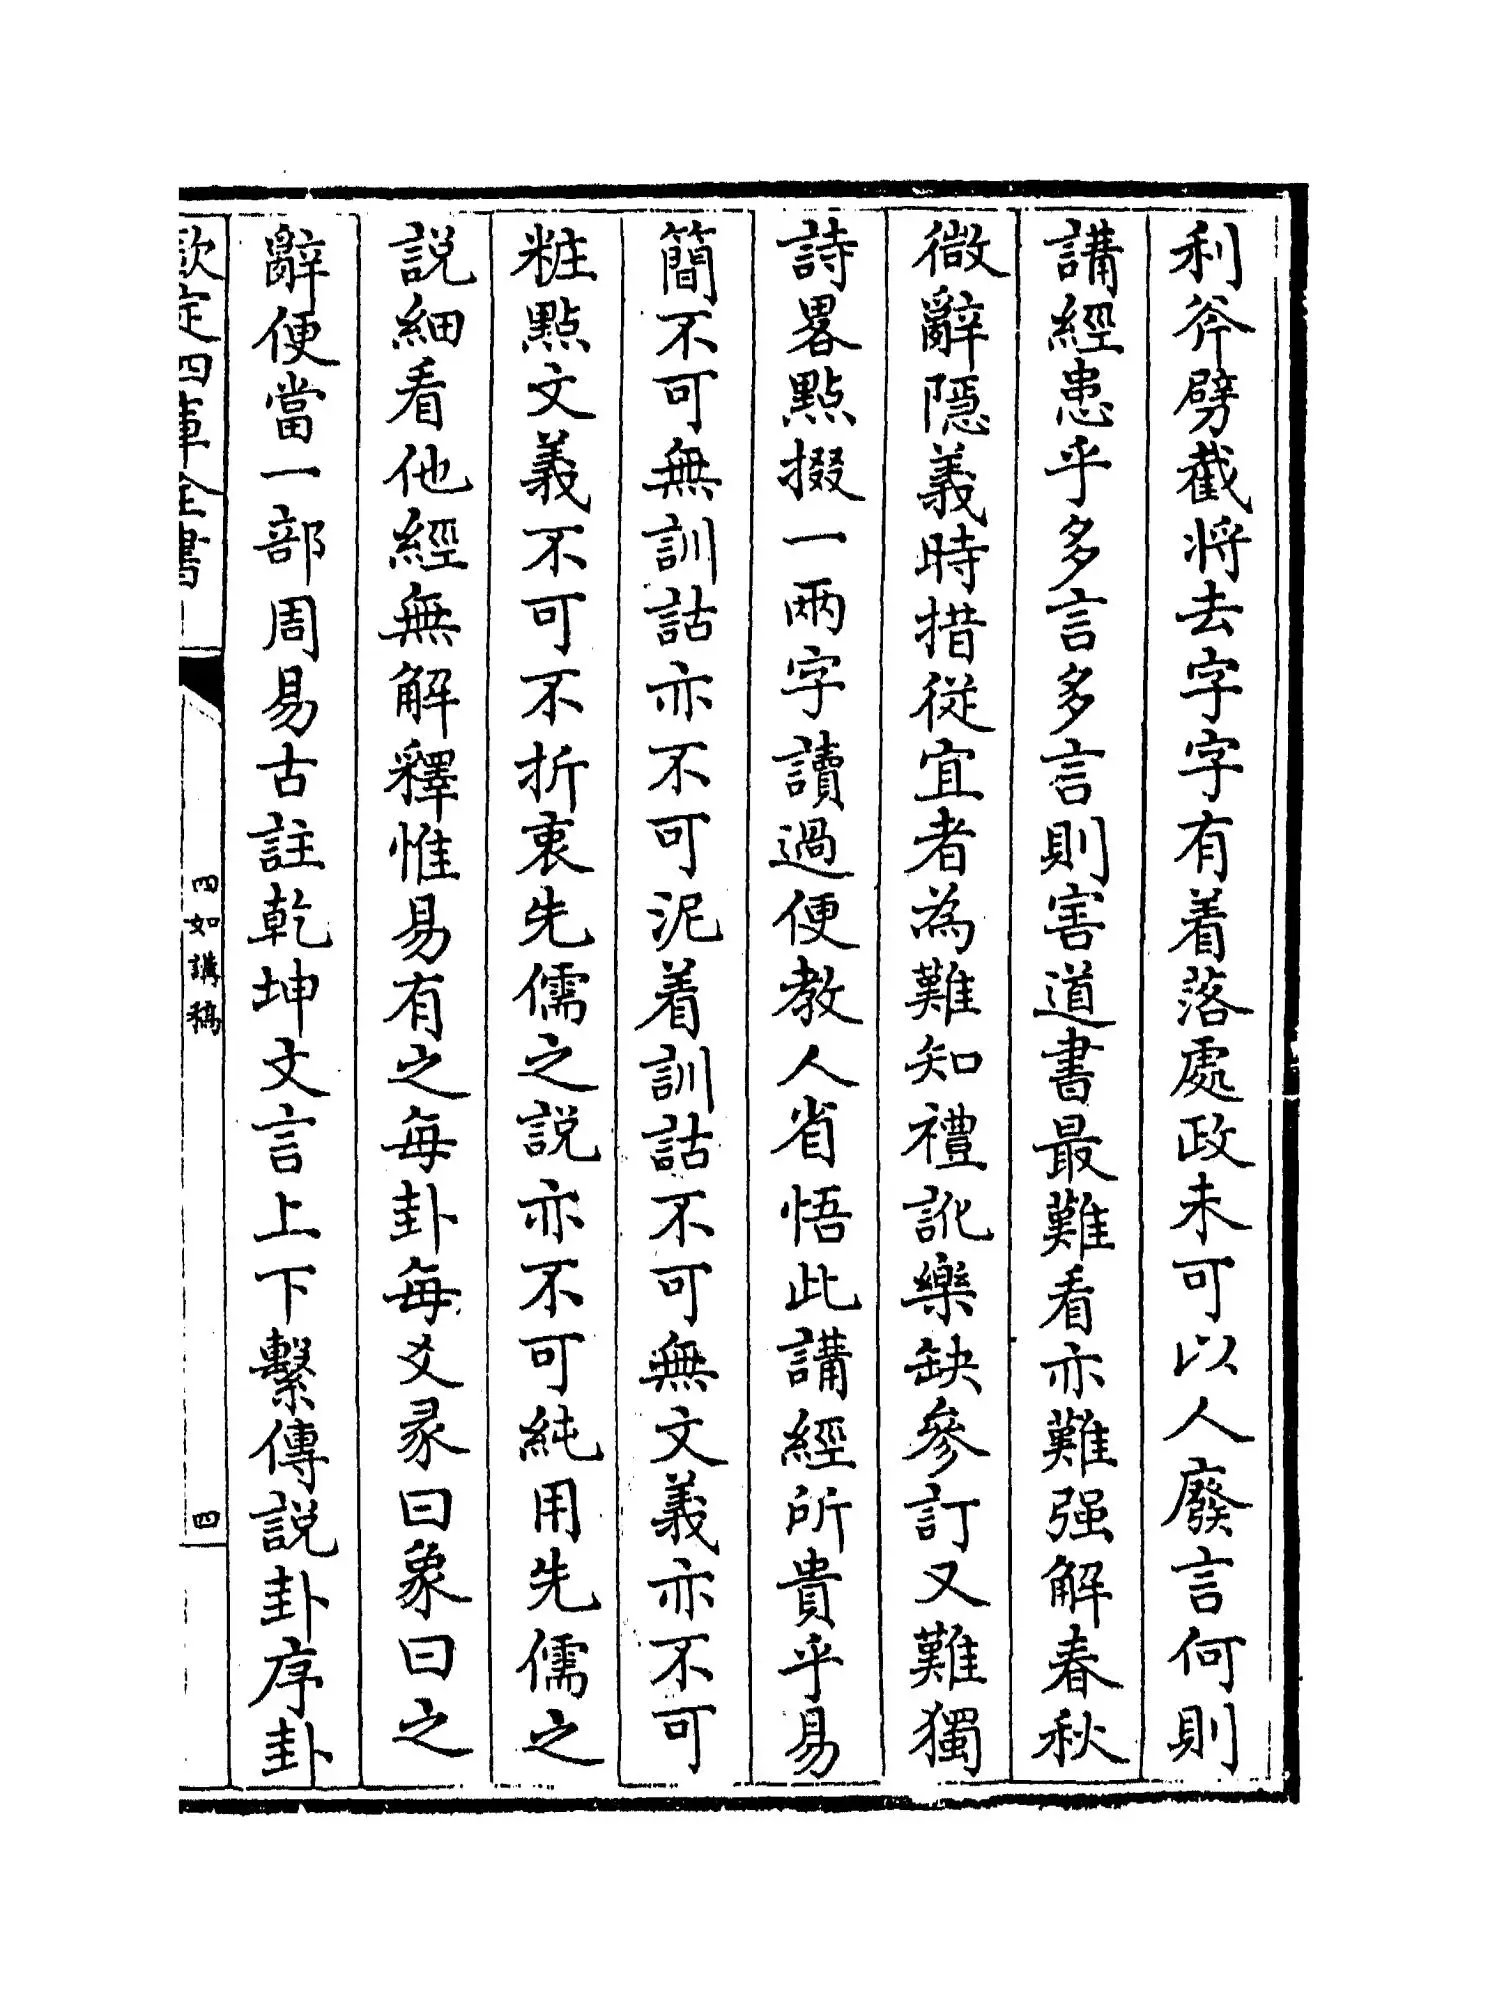 利斧劈截將去字字有着落處政未可以人廢言何則
講經患乎多言多言則害道書最難看亦難强解春秋
微辭隠義時措從宜者為難知禮訛樂缺參訂又難獨
詩畧點掇一兩字讀過便教人省悟此講經所貴乎易
簡不可無訓詁亦不可泥着訓詁不可無文義亦不可
粧點文義不可不折衷先儒之説亦不可純用先儒之
説細看他經無解釋惟易有之每卦每爻彖曰象曰之
辭便當一部周易古註乾坤文言上下繫傳説卦序卦
欽定四庫全書
四如講稿
四